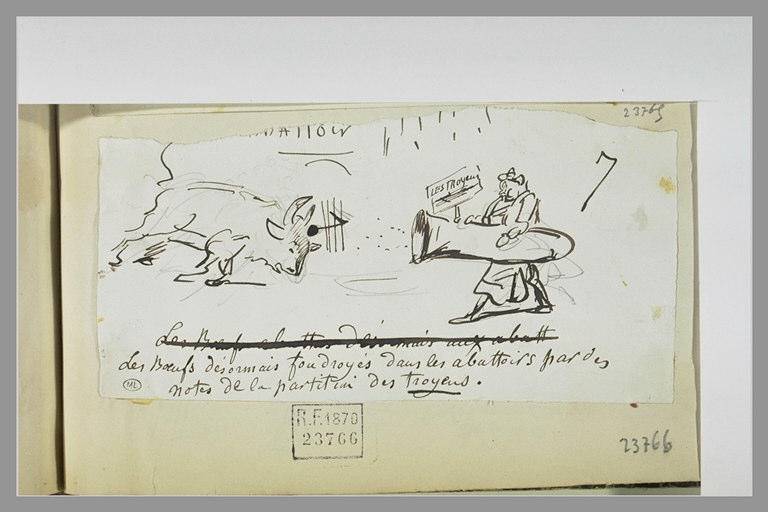 23765
ABATTOIR
LES TROYENS
7
Les Bœufs abattus désormais aux abatt
Les Bœufs désormais foudroyés dans les abattoirs par des
notes de la partition des Troyens.
ML
R.F.1870
23766
23766